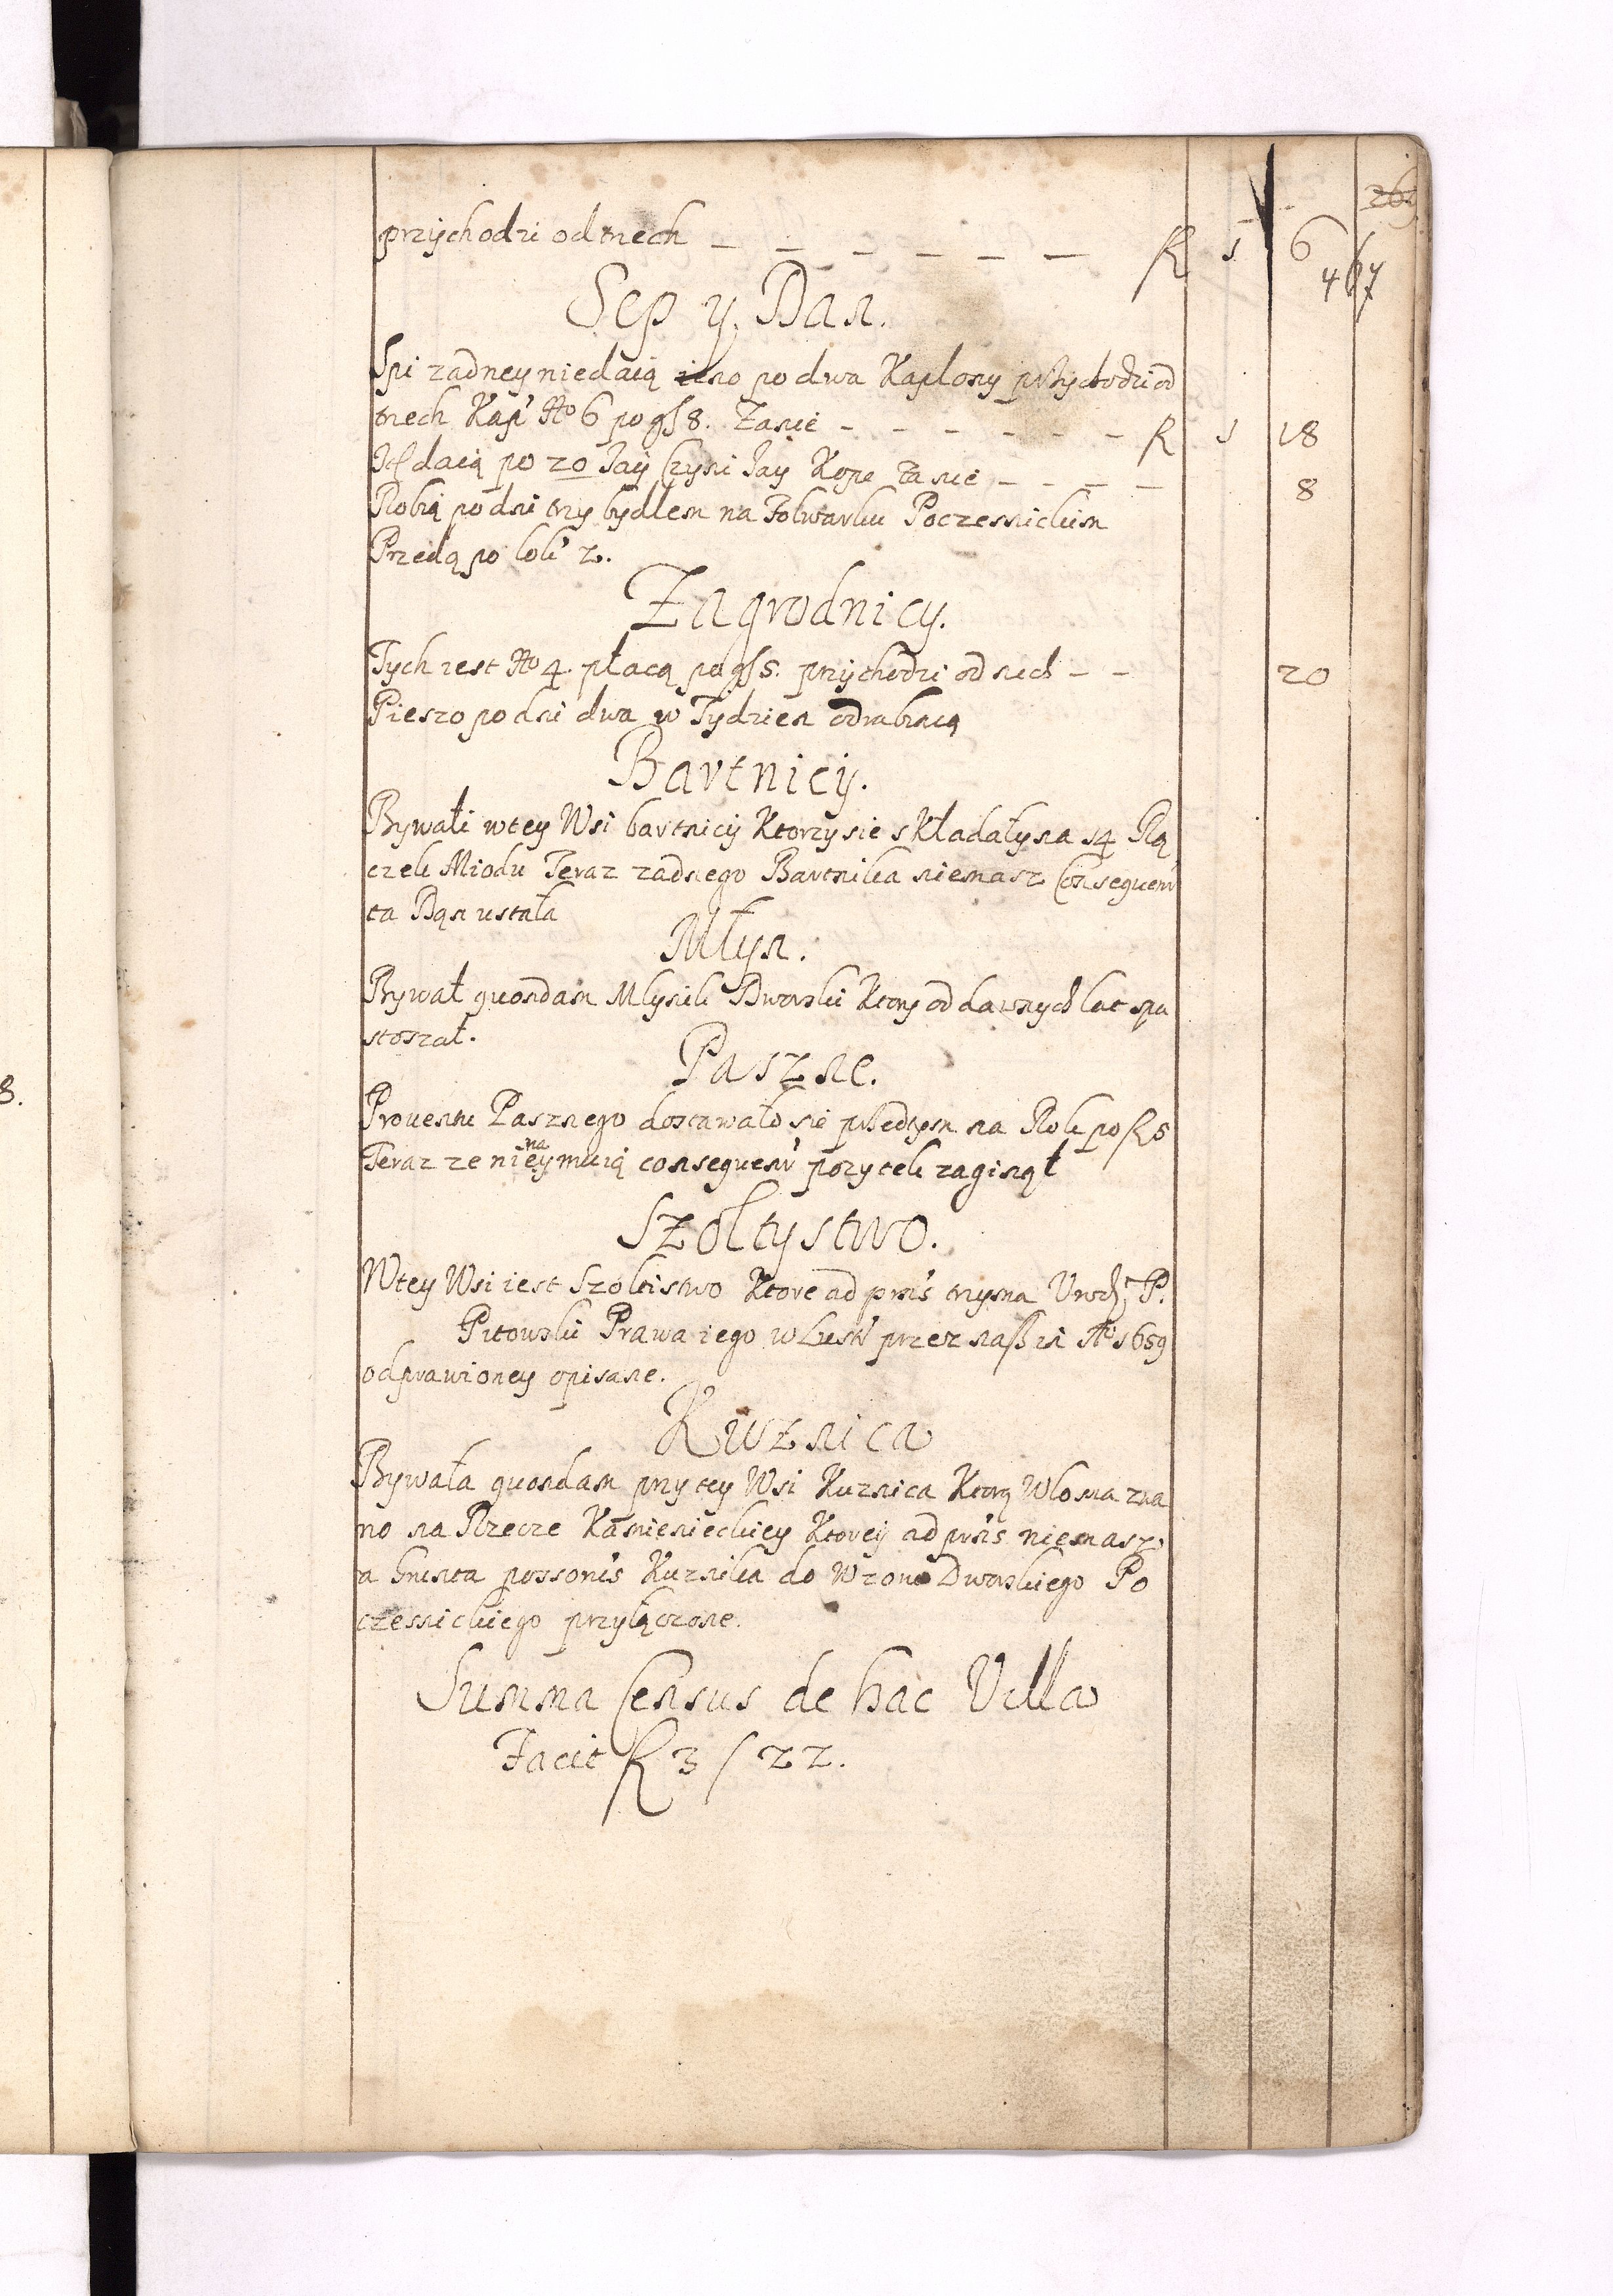 269
467
przychodzi od trzech _ _ _ _ _ _ _ fl 1 6
Sep y Dan.
Spi zadney niedaią ieno po dwa Kapłony przychodzi od
trzech Kap' Nro 6 po gſ 8. Tanie _ _ _ _ _ _ _ fl 1 18
Jtſ daią po 20 Jay Czyni Jay Kope Ta nie _ _ _ _ 8
Robią po dni trzy bydłem na Folwarku Poczesnickim
Przedą po łok' 2.
Zagrodnicy.
Tych iest Nro 4. płacą po gſ 5. przychodzi od nich _ _ 20
Pieszo po dni dwa w Tydzien odrabiaią
Bartnicy.
Bywali w tey Wsi bartnicy Ktorzy sie składały na 14 Rą
czek Miodu Teraz zadnego Bartnika niemasz Consequent'
ta Dan ustała
Młyn.
Bywał quondam Młynik Dworski Ktory od dawnych lat spu
stoszał.
Paszne.
Prouentu Pasznego dostawało sie przedtym na Rok po fl 5
Teraz ze nie na ymuią consequent' pozytek zaginął
Szołtystwo.
W tey Wsi iest Szoltistwo Ktore ad prns trzyma Urodz. P.
Pitowski Prawa iego w Lustr' przeznaſs in Ao 1659
odprawioney opisane.
Kuznica
Bywała quondam przy tey Wsi Kuznica Ktorą Włosna zwa
no na Rzecze Kamienieckiey Ktorey ad prns niemasz
a Grunta possonis Kuznika do Wzoru Dworskiego Po
czesnickiego przyłączone.
Summa Census de hac Villa
Facit fl 3 / 22.
8.